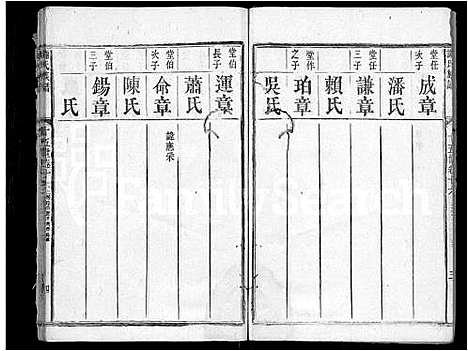 堂任
次子
成章
潘氏
堂任
三子
謙章
賴氏
堂作
之子
珀章
吳氏
堂伯
長子
運章
蕭氏
堂伯
次子
命章
諡應采
陳氏
堂伯
三子
錫章
氏
FamilySearch